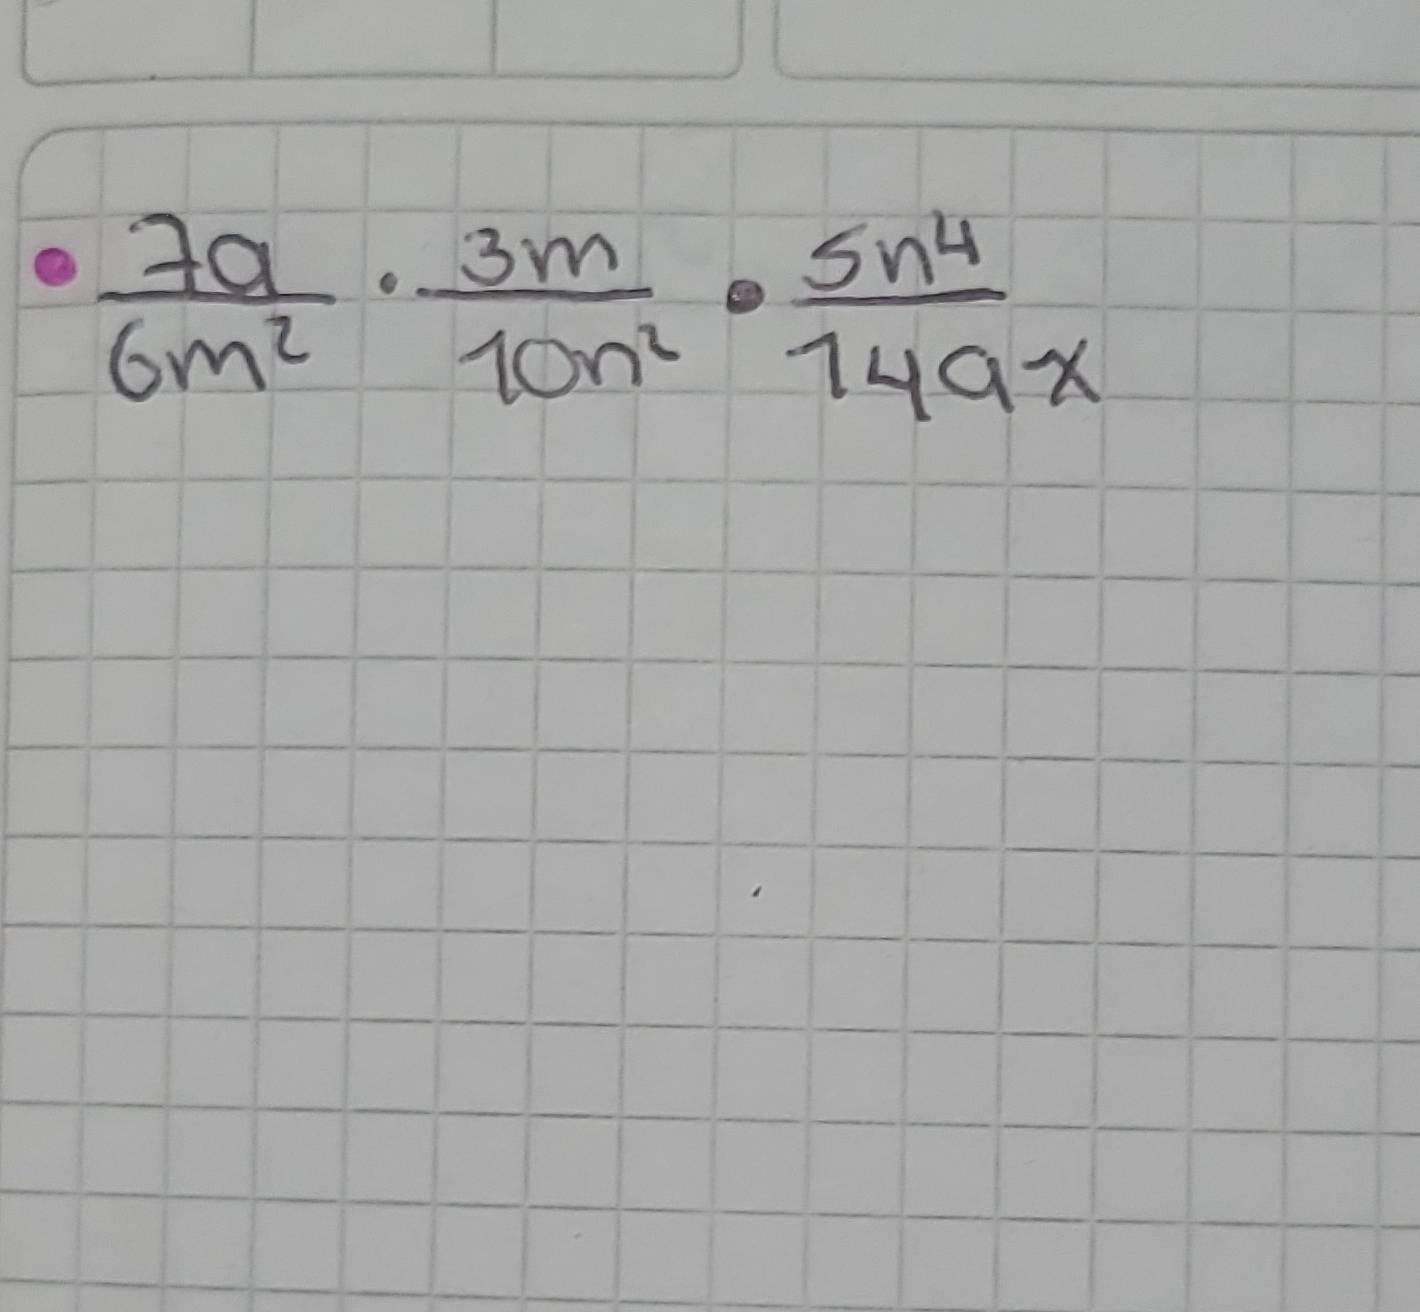 • 7a/6m² · 3m/10n² • 5n⁴/14ax